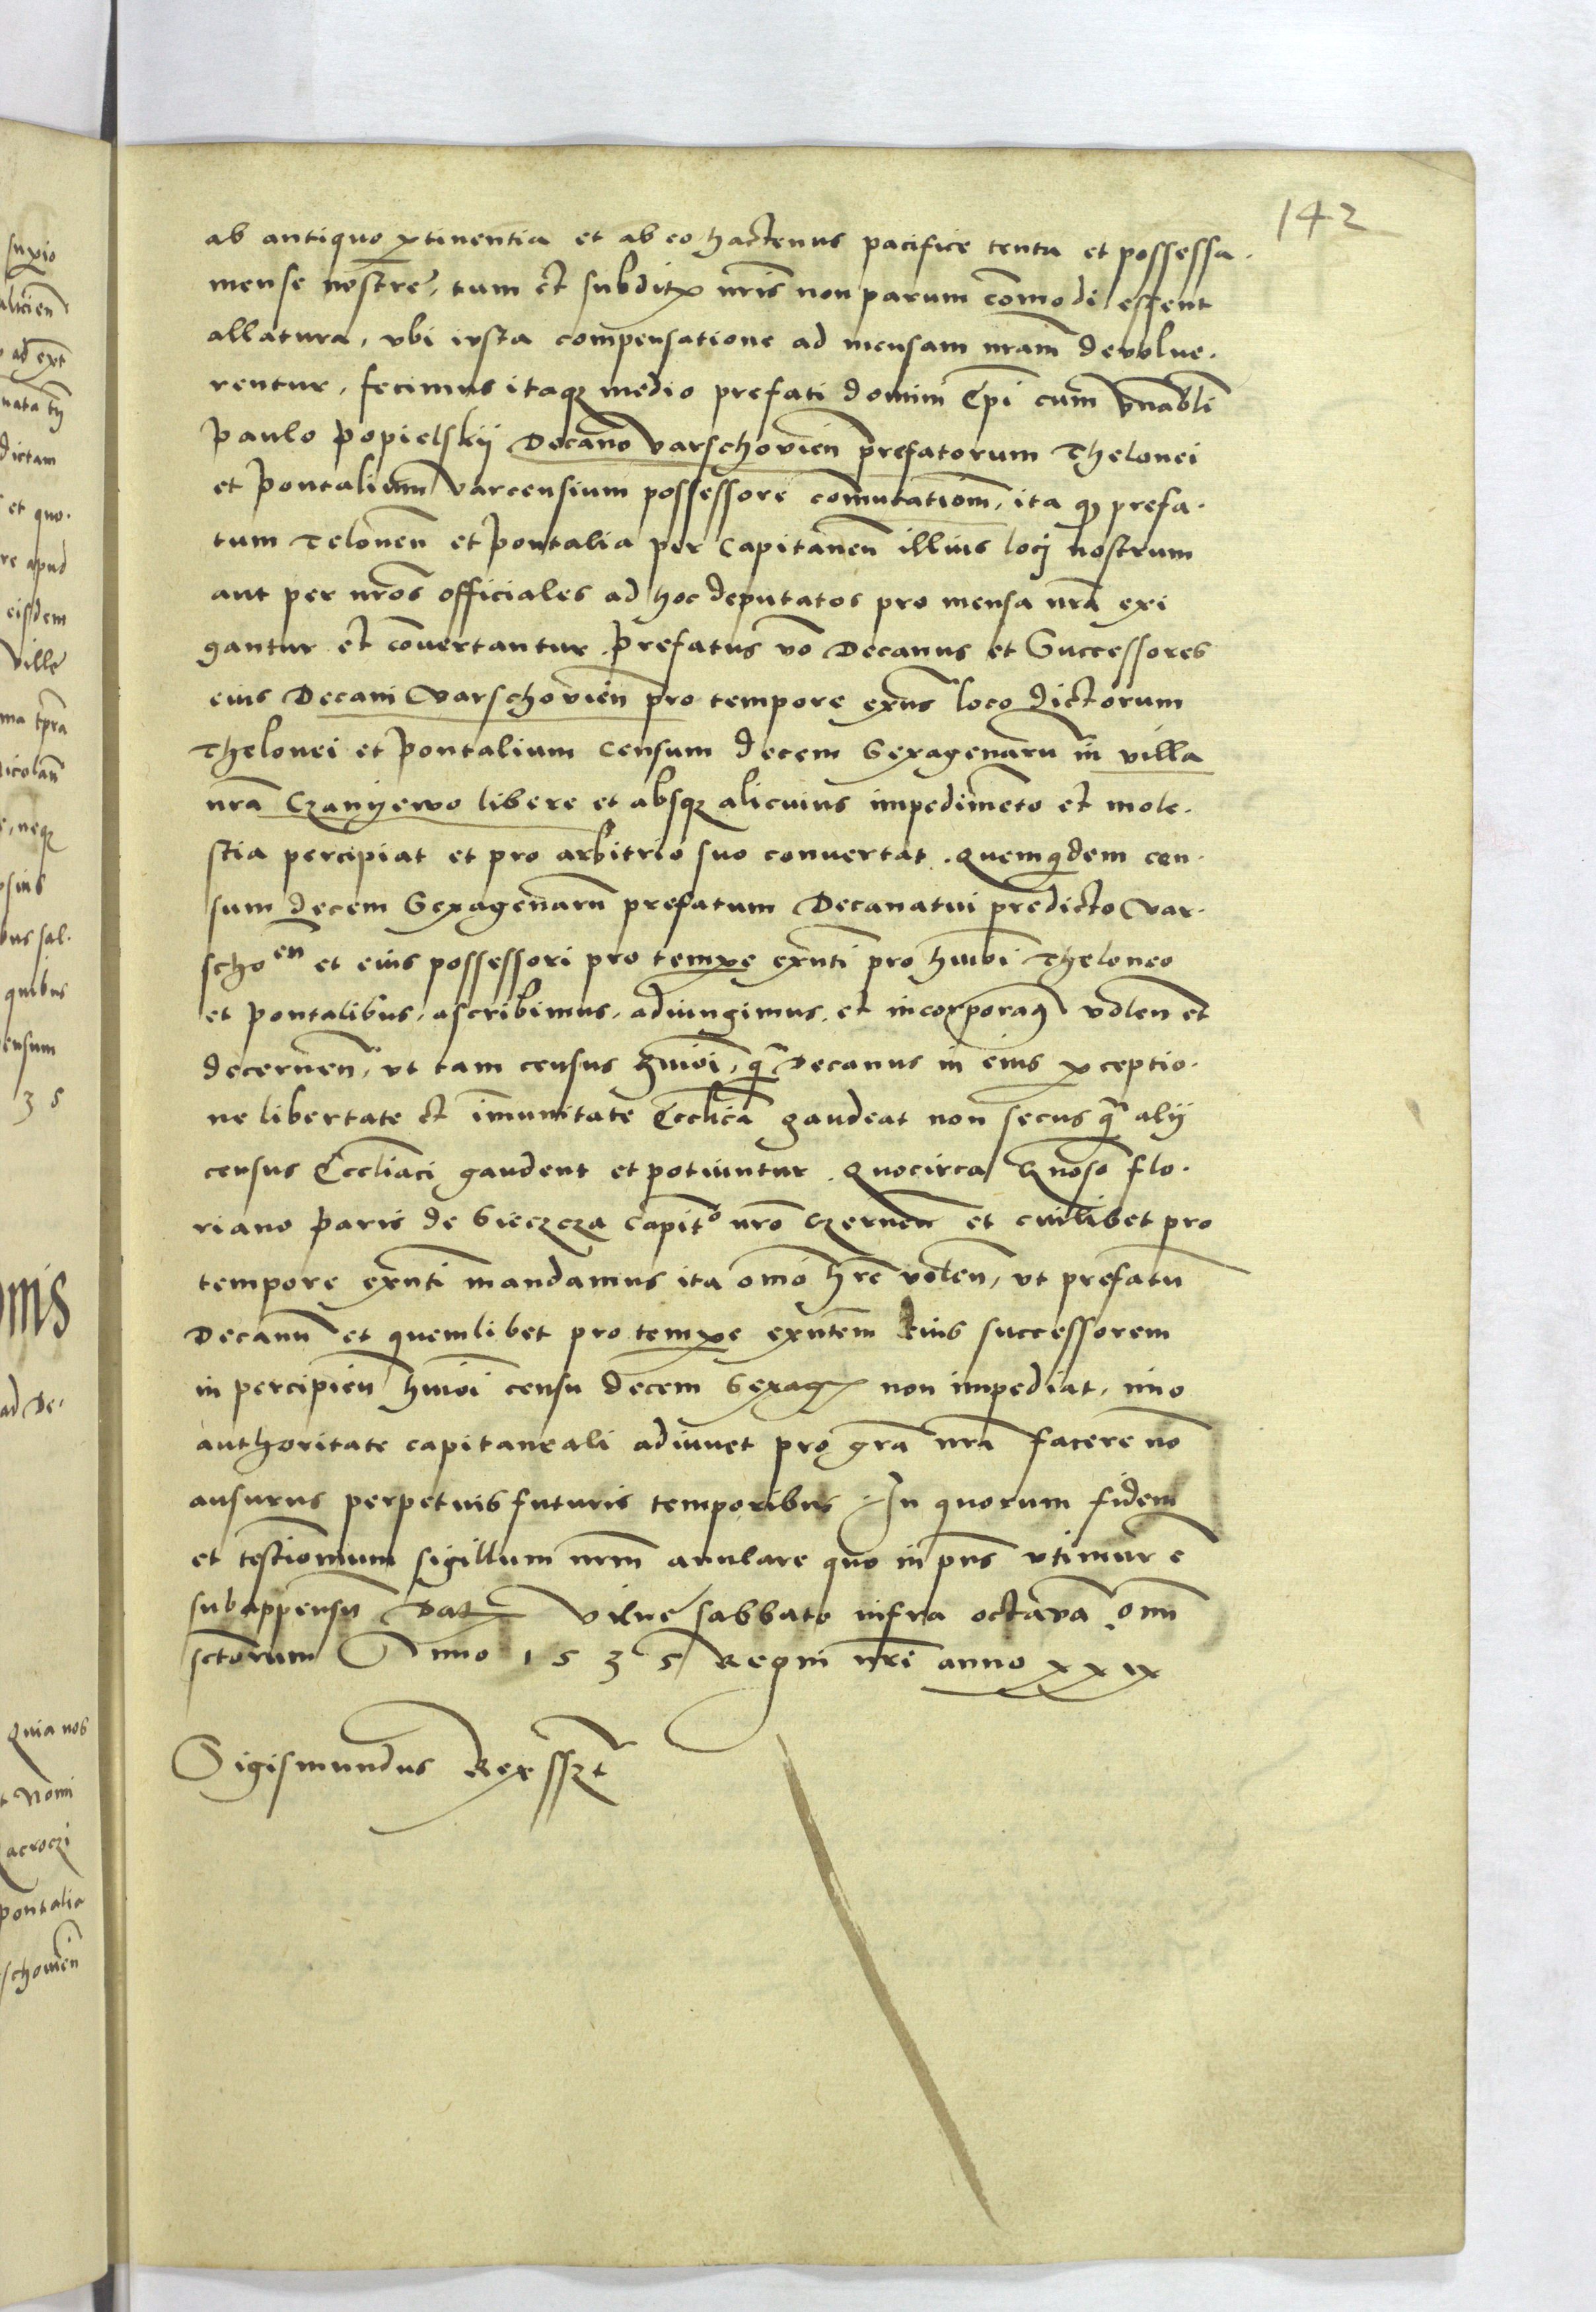 142
ab antiquo ꝑtinentia et ab eo hactenus pacifice tenta et possessa.
mense nostre, tum et subditꝭ nr̄is non parum com̄odi essent
allatura, vbi iusta compensatione ad mensam nr̄am devolue.
rentur, fecimus itaqȝ medio prefati domini Ep̄i cum ven̄abli
Paulo Popielskij Decano Varschovien̄ prefatorum Thelonei
et pontalium Varcensium possessore com̄utatiom̄, ita qd prefa.
tum Teloneū et pontalia per Capitaneū illius locj nostrum
aut per nr̄os officiales ad hoc deputatos pro mensa nr̄a exi
gantur et conuertantur. Prefatus vo Decanus et Successores
eius Decani Varschovien̄ pro tempore exn̄s loco dictorum
Thelonei et pontalium censum decem Sexagenarū in villa
nr̄a Czanyewo libere et absqȝ alicuius impedimēto et mole.
stia percipiat et pro arbitrio suo convertat. Quemqdem cen.
sum decem Sexagenarū prefatum Decanatui predicto Var.
schoen̄ et eius possessori pro temꝑe exn̄ti pro hmōi Theloneo
et pontalibus, ascribimus, adiungimus, et incorporamꝰ volen̄ et
decernen̄, vt tam census hmōi, qm̄ Decanus in eius ꝑceptio.
ne libertate et im̄unitate Eccl̄ica gaudeat non secus qm̄ alij
census Eccl̄iaci gaudent et potiuntur. Quocirca Gn̄oso Flo.
riano Paris de Sieczcza Capitº nr̄o Czernen̄ et cuilibet pro
tempore exn̄ti mandamus ita om̄o hr̄e volen̄, vt prefatū
Decanū et quemlibet pro temꝑe exn̄tem eius successorem
in percipien̄ hmōi censu decem Sexagꝭ non impediat, imo
authoritate capitaneali adiuuet pro gr̄a nr̄a facere nō
ausurus perpetuis futuris temporibus. In quorum fidem
et testiom̄ium sigillum nr̄m anulare quo in pn̄s vtimur e
subappensū Datꝭ Vilne sabbato infra octava om̄
sctorum Anno 1535 Regni nr̄i anno xxix
Sigismundus Rex sszt